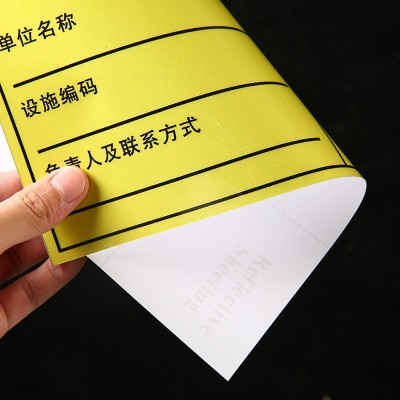 单位名称
设施编码
负责人及联系方式
Reflective
Sheeting